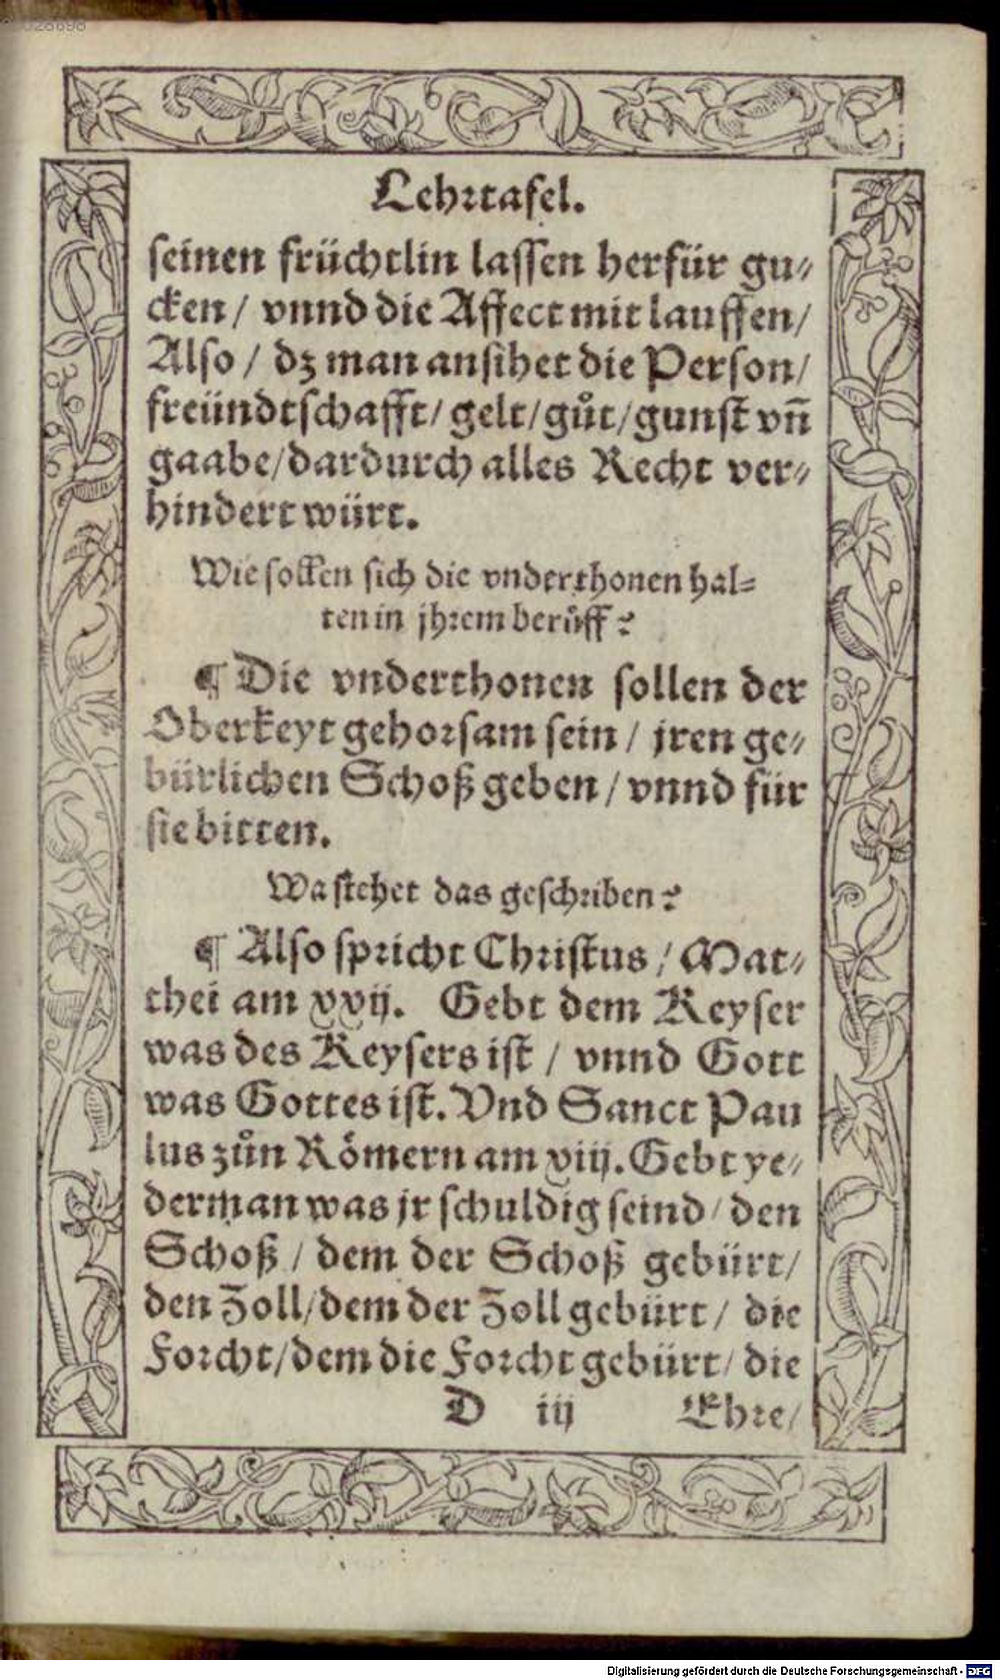 Lehrtafel.
seinen früchtlin lassen herfür gu⸗
cken / vnnd die Affect mit lauffen /
Also / dz man ansihet die Person /
freündtschafft / gelt / gůt / gunst vñ
gaabe / dardurch alles Recht ver⸗
hindert würt.
Wie sollen sich die vnderthonen hal⸗
ten in jhrem berůff?
¶ Die vnderthonen sollen der
Oberkeyt gehorsam sein / jren ge⸗
bürlichen Schoß geben / vnnd für
sie bitten.
Wa stehet das geschriben?
¶ Also spricht Christus / Mat⸗
thei am xxij. Gebt dem Keyser
was des Keysers ist / vnnd Gott
was Gottes ist. Vnd Sanct Pau
lus zůn Römern am xiij. Gebt ye⸗
derman was jr schuldig seind / den
Schoß / dem der Schoß gebürt /
den Zoll / dem der Zoll gebürt / die
Forcht / dem die Forcht gebürt / die
D iij Ehre /
Digitalisierung gefördert durch die Deutsche Forschungsgemeinschaft - DFG